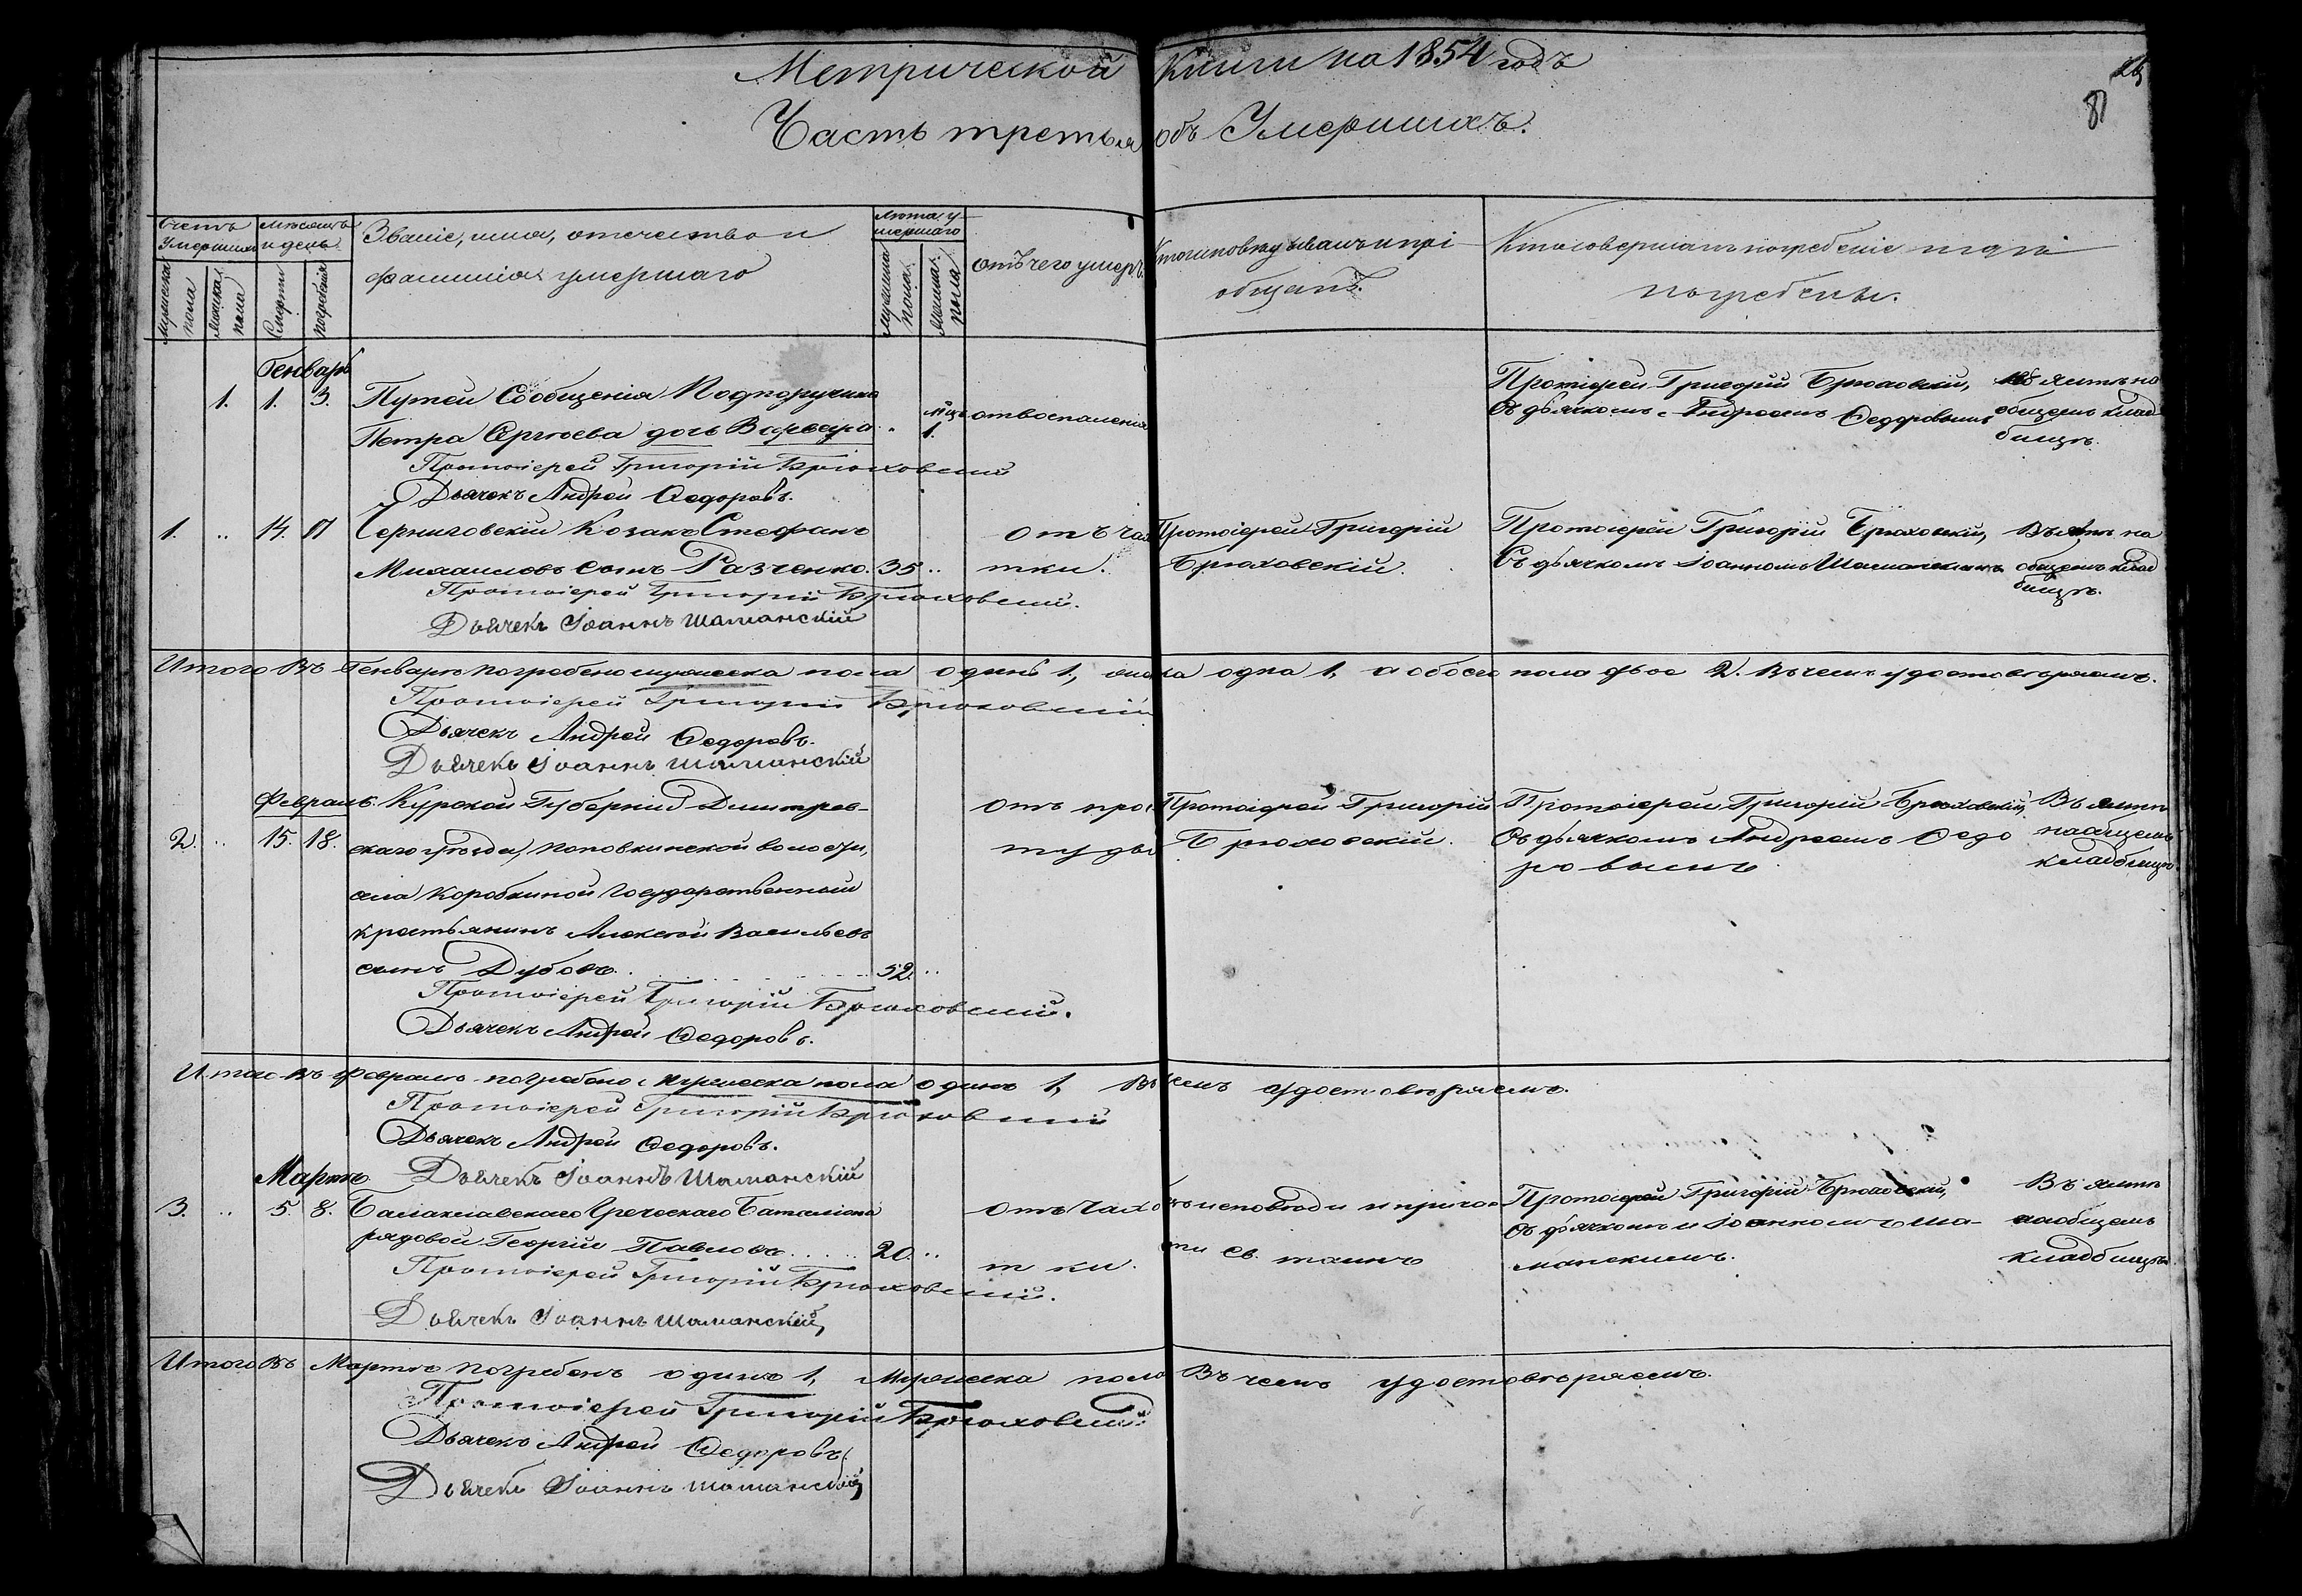 Метрической Книги на 1854 годъ
81
Часть третья объ Умершихъ.
Счетъ Умершихъ
Мѣсяцъ и день
Званіе, имя, отечество и
фамилія умершаго
Лѣта умершаго
отъ чего умеръ
Кто исповѣдывалъ и прі-
общалъ.
Кто совершалъ погребеніе и гдѣ
погребены.
мужеска пола
женска пола
Смерти
погребенія
мужеска пола
женска пола
Генварь
1. 1. 3. Путей Сообщенія Подпоручика
Петра Сергѣева дочь Варвара " мѣц. 1. отвоспаленія
Протоіерей Григорій Брюховскій,
Съ дьячкомъ Андреемъ Ѳедоровымъ
на
общемъ клад-
бищѣ.
Протоіерей Григорій Брюховскій
Дьячекъ Андрей Ѳедоровъ.
1. .. 14. 17 Черниговскій Козакъ Стефанъ
Михаиловъ сынъ Разченко. 35 ..
отъ чахо
тки.
Протоіерей Григорій
Брюховскій.
Протоіерей Григорій Брюховскій,
Съ дьячкомъ Іоанномъ Шаманскимъ
Въ Ялтѣ на
общемъ клад
бищѣ.
Протоіерей Григорій Брюховскій.
Дьячекъ Іоаннъ Шаманскій
Итого Въ Генварѣ погребено мужеска пола одинъ 1, женска одна 1, а обоего пола двое 2. Въ чемъ удостовѣряемъ.
Протоіерей Григорій Брюховскій
Дьячекъ Андрей Ѳедоровъ.
Дьячекъ Іоаннъ Шаманскій
Февраль. Курской Губерніи Дмитрев-
2. .. 15. 18. скаго уѣзда, Поповкинской волости,
села Коробкиной Государственный
крестьянинъ Алексѣй Васильевъ
сынъ Дубовъ. 52. ..
отъ прос
туды
Протоіерей Григорій
Брюховскій.
Протоіерей Григорій Брюховскій,
Съ дьячкомъ Андреемъ Ѳедо
ровымъ
Въ Ялтѣ
на общемъ
кладбищѣ.
Протоіерей Григорій Брюховскій.
Дьячекъ Андрей Ѳедоровъ.
Итого Въ Февралѣ погребено мужеска пола одинъ 1, Въ чемъ удостовѣряемъ.
Протоіерей Григорій Брюховскій
Дьячекъ Андрей Ѳедоровъ.
Дьячекъ Іоаннъ Шаманскій
Мартъ
3. .. 5. 8. Балаклавскаго Греческаго Баталіона
рядовой Георгій Павловъ..... 20. ..
отъ чахо
тки.
исповѣди и прича
сти Св. таинъ
Протоіерей Григорій Брюховскій,
Съ дьячкомъ Іоанномъ Ша-
манскимъ.
Въ Ялтѣ
на общемъ
кладбищѣ
Протоіерей Григорій Брюховскій.
Дьячекъ Іоаннъ Шаманскій,
Итого Въ Мартѣ погребенъ одинъ 1, Мужеска пола Въ чемъ удостовѣряемъ.
Протоіерей Григорій Брюховскій
Дьячекъ Андрей Ѳедоровъ
Дьячекъ Іоаннъ Шаманскій